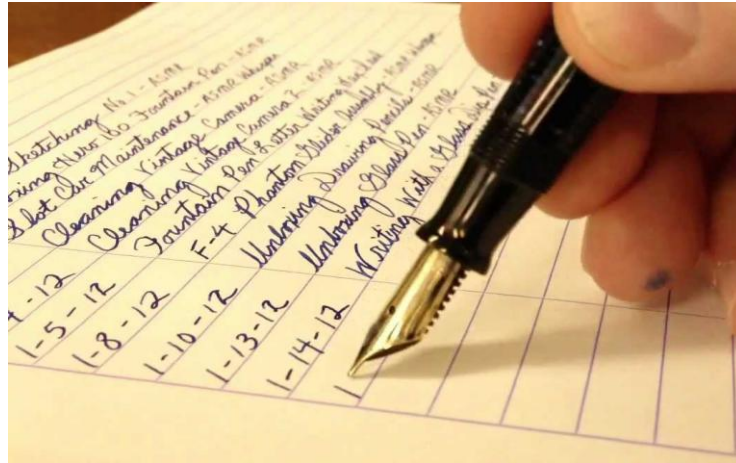 Sketching No. 1 - ASMR
Fountain Pen - ASMR
Slot Car Maintenance - ASMR Whisper
Cleaning Vintage Camera - ASMR
-12 Cleaning Vintage Camera 2 - ASMR
1-5-12 Fountain Pen Letter Writing
1-8-12 F-4 Phantom Glider Assembly - ASMR Whisper
1-10-12 Unboxing Drawing Pencils - ASMR
1-13-12 Unboxing Glass Pen - ASMR
1-14-12 Writing With a Glass Dip Pen
1